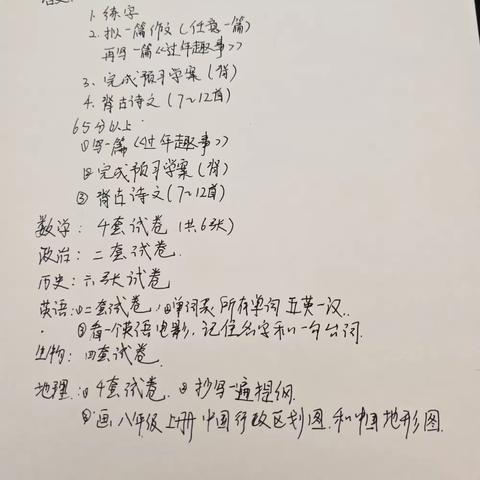 语文:
1. 练字
2. 拟一篇作文(任意一篇)
再写一篇《过年趣事》
3. 完成预习学案(背)
4. 背古诗文(7~12首)
65分以上.
①写一篇《过年趣事》
②完成预习学案(背)
③ 背古诗文(7~12首)
数学: 4套试卷(共6张)
政治: 二套试卷.
历史: 六张试卷
英语:①二套试卷, ②单词表 所有单词 五英一汉.
③看一个英语电影, 记住名字和一句台词.
生物: 四套试卷.
地理:① 4套试卷. ② 抄写一遍提纲.
③画 八年级上册 中国行政区划图 和中国地形图.